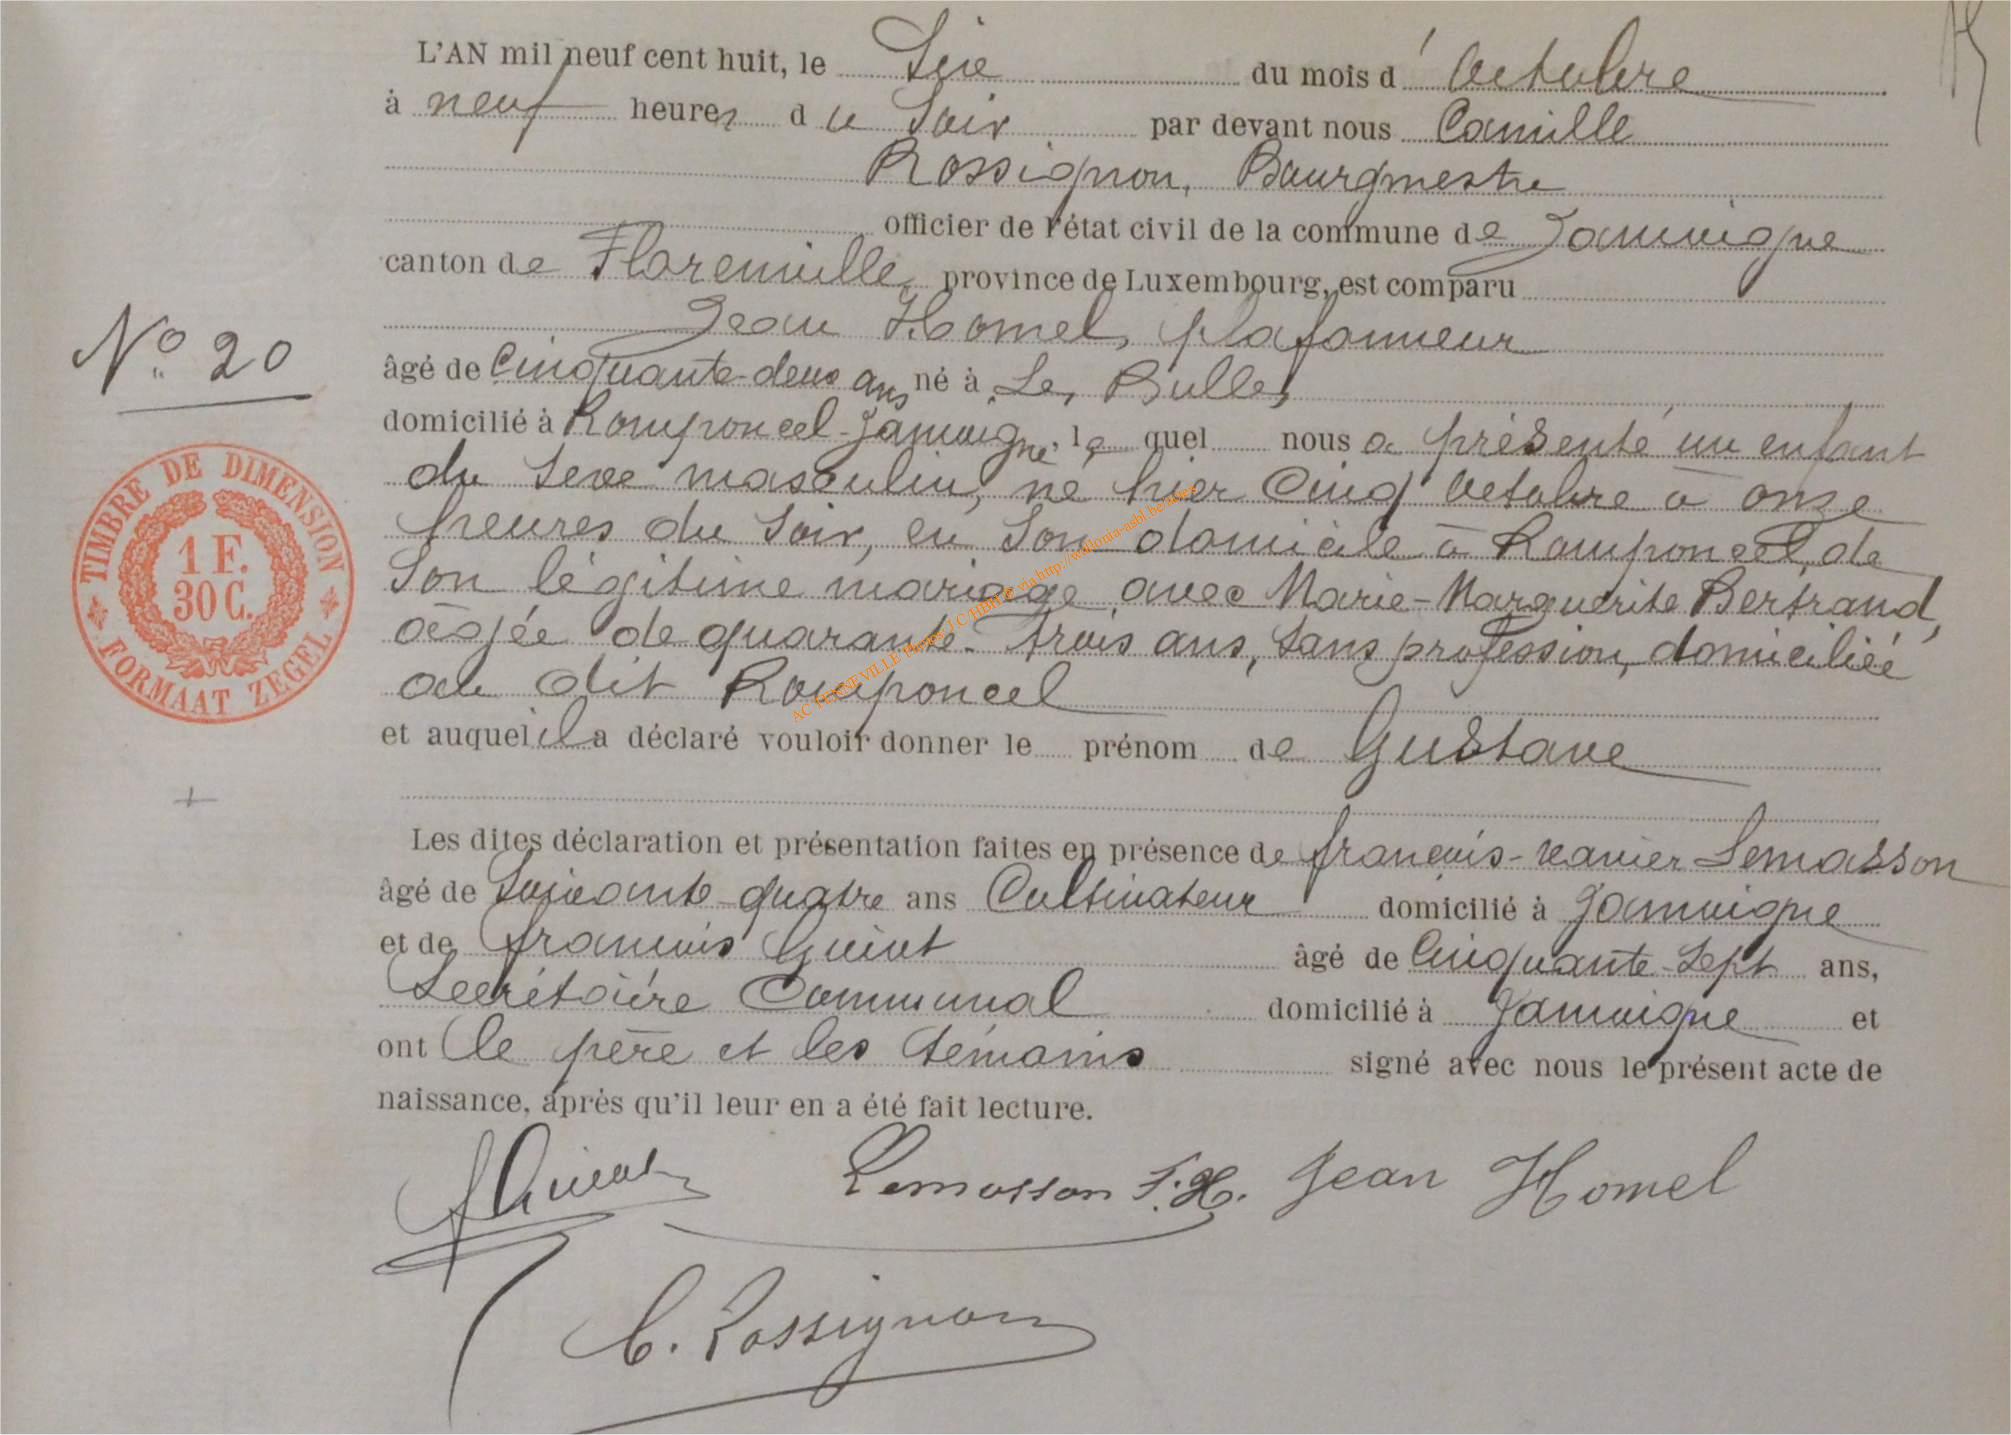 L'AN mil neuf cent huit, le Six du mois d'Octobre
à neuf heures du Soir par devant nous Camille
Rossignon, Bourgmestre
officier de l'état civil de la commune de Jamoigne
canton de Florenville, province de Luxembourg, est comparu
Jean Homel, plafonneur
âgé de Cinquante-deux ans né à Les Bulles
domicilié à Romponcel-Jamoigne, lequel nous a présenté un enfant
du Sexe masculin, né hier Cinq Octobre à onze
heures du Soir, en Son domicile à Romponcel, de
Son légitime mariage avec Marie-Marguerite Bertrand,
âgée de quarante-trois ans, Sans profession, domiciliée
au dit Romponcel
et auquel il a déclaré vouloir donner le prénom de Gustave
Les dites déclaration et présentation faites en présence de françois-xavier Lemasson
âgé de Soixante-quatre ans Cultivateur domicilié à Jamoigne
et de françois Guiot âgé de Cinquante-Sept ans,
Secrétaire Communal domicilié à Jamoigne et
ont le père et les témoins signé avec nous le présent acte de
naissance, après qu'il leur en a été fait lecture.
N° 20
TIMBRE DE DIMENSION
1 F.
30 C.
FORMAAT ZEGEL
Lemasson F.X. Jean Homel
C. Rossignon